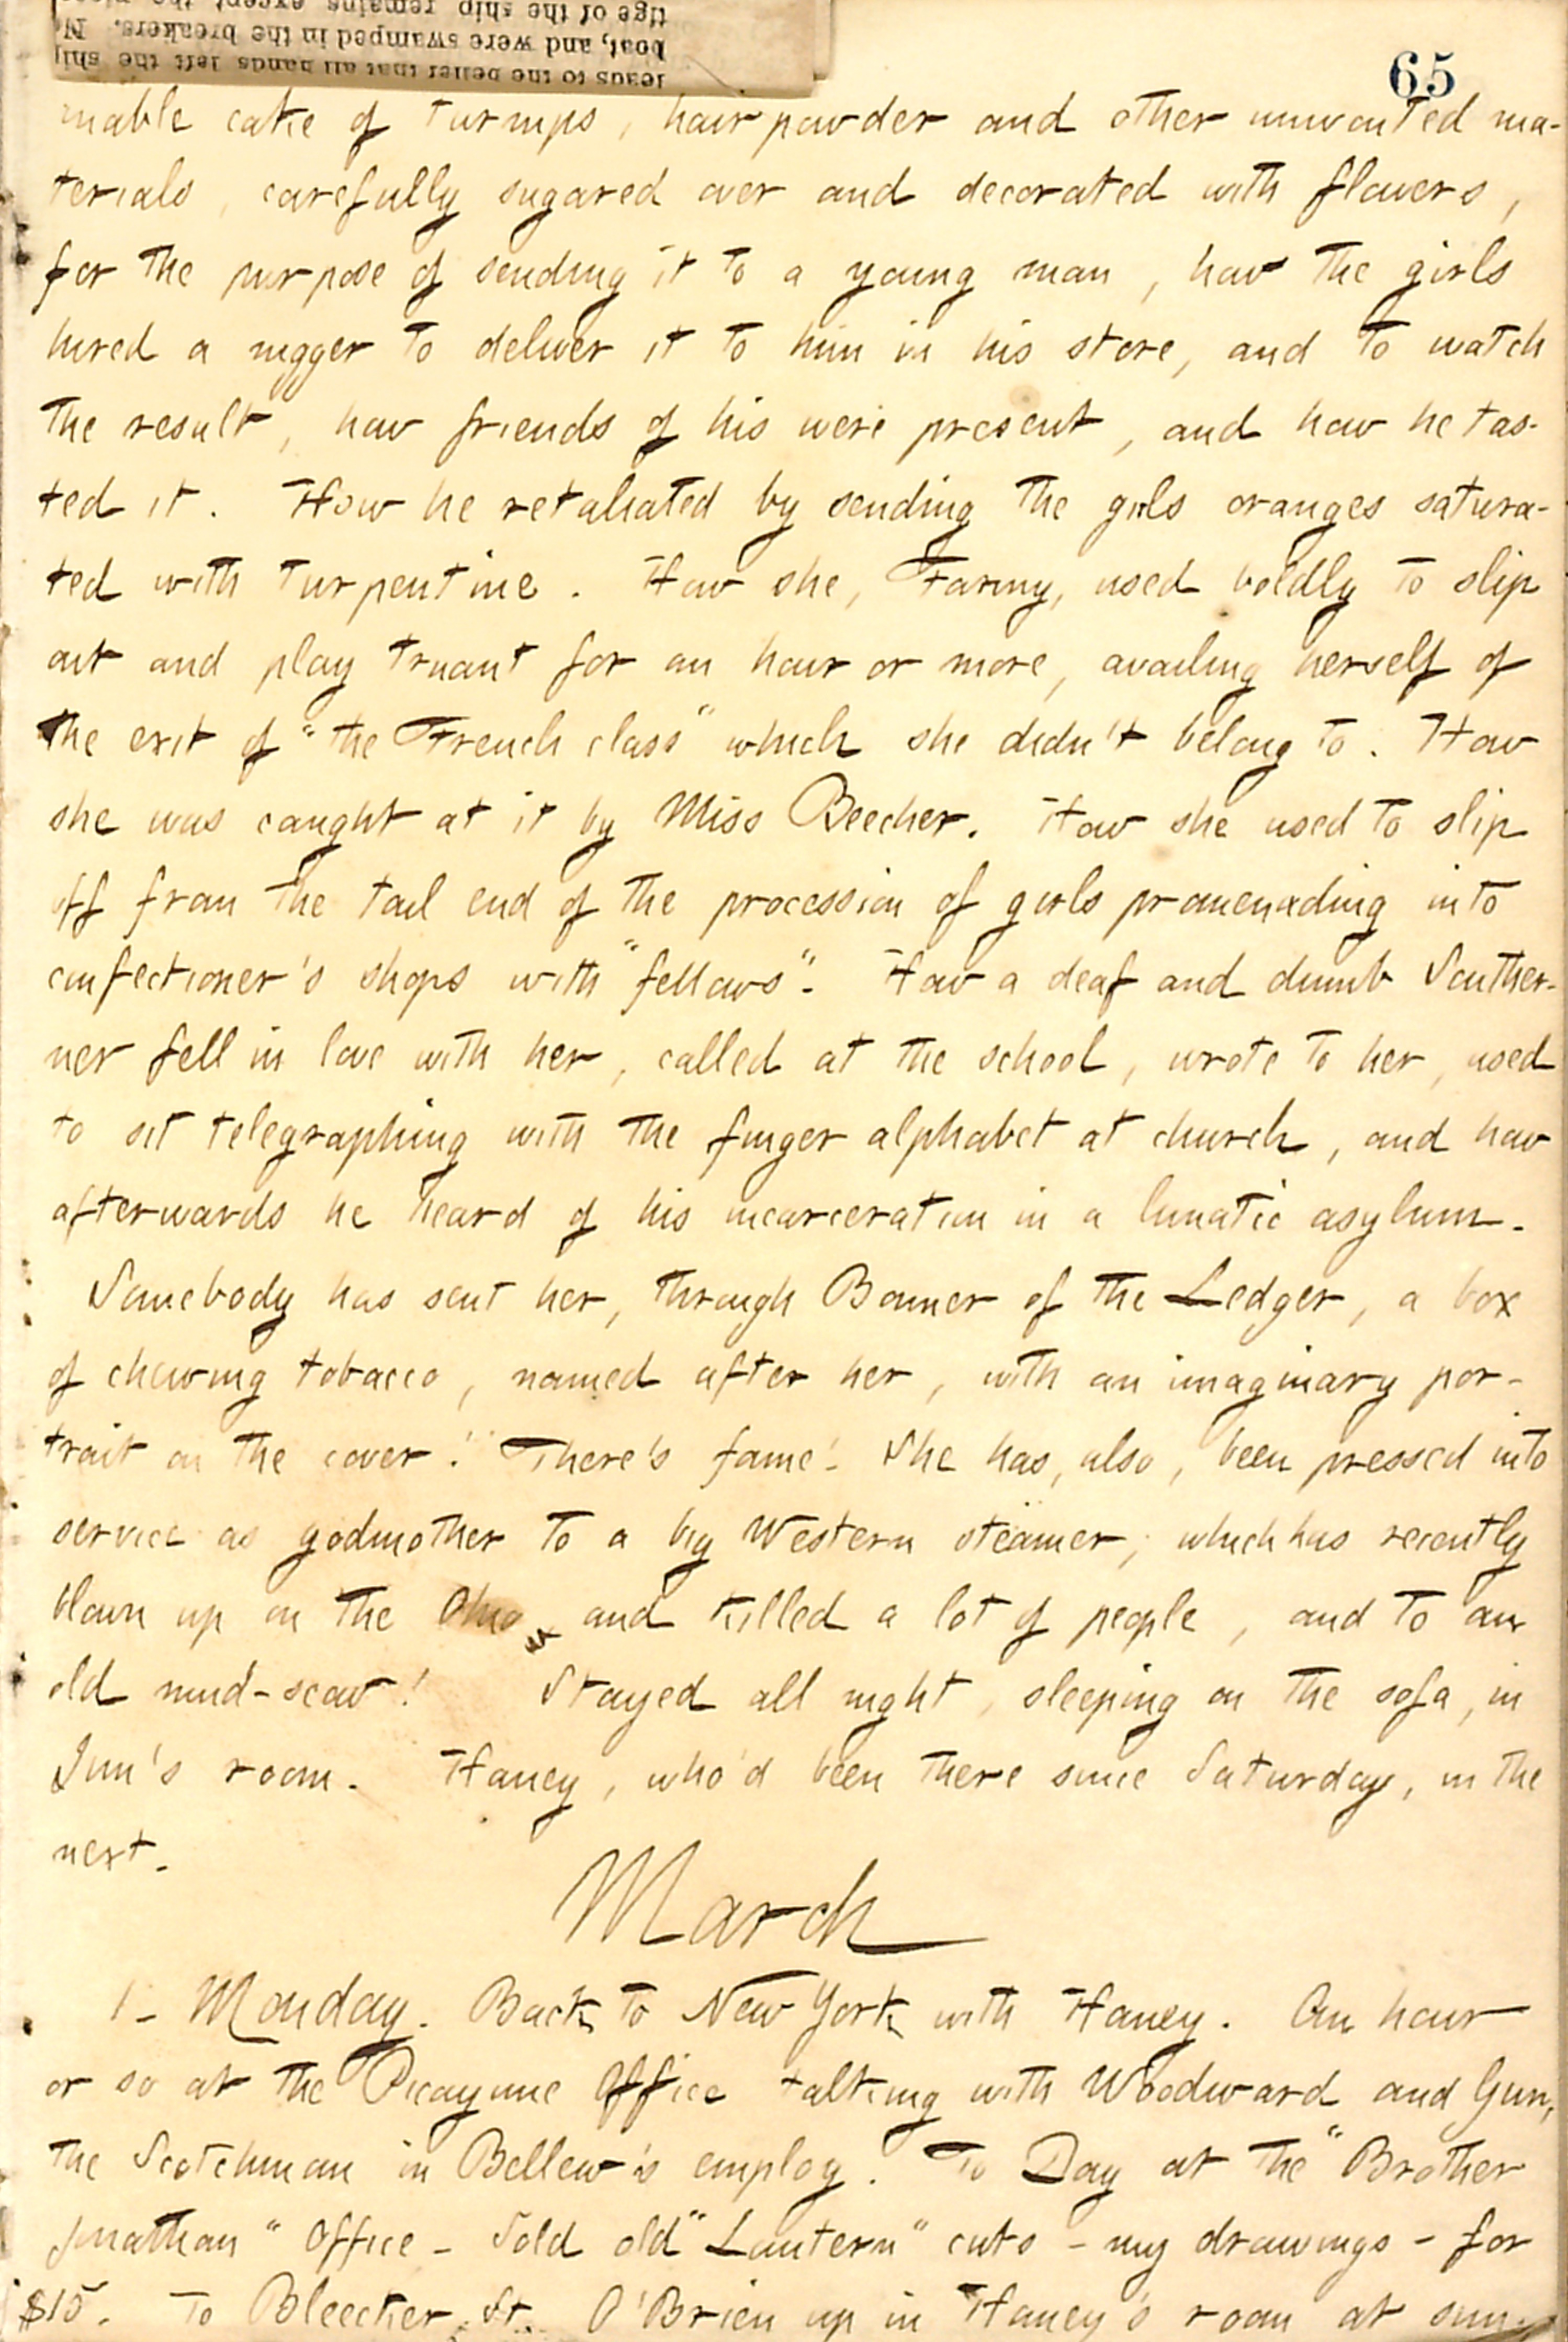 leads to the belief that all hands left the ship
boat, and were swamped in the breakers. N
tige of the ship remains except the
65
mable cake of turnips, hair powder and other unwonted ma-
terials, carefully sugared over and decorated with flowers,
for the purpose of sending it to a young man, how the girls
hired a nigger to deliver it to him in his store, and to watch
the result, how friends of his were present, and how he tas-
ted it. How he retaliated by sending the girls oranges satura-
ted with turpentine. How she, Fanny, used boldly to slip
out and play truant for an hour or more, availing herself of
the exit of "the French class" which she didn't belong to. How
she was caught at it by Miss Beecher. How she used to slip
off from the tail end of the procession of girls promenading into
confectioner's shops with "fellows". How a deaf and dumb Souther-
ner fell in love with her, called at the school, wrote to her, used
to sit telegraphing with the finger alphabet at church, and how
afterwards he heard of his incarceration in a lunatic asylum.
Somebody has sent her, through Bonner of the Ledger, a box
of chewing tobacco, named after her, with an imaginary por-
trait on the cover! There's fame! She has, also, been pressed into
service as godmother to a big Western steamer, which has recently
blown up on the Ohio and killed a lot of people, and to an
old mud-scow! Stayed all night, sleeping on the sofa, in
Jim's room. Haney, who'd been there since Saturday, in the
next.
March
1. Monday. Back to New York with Haney. An hour
or so at the Picayune Office talking with Woodward and Gun,
the Scotchman in Bellew's employ. To Day at the "Brother
Jonathan" Office. Sold old "Lantern" cuts - my drawings - for
$15. To Bleecker St. O'Brien up in Haney's room at